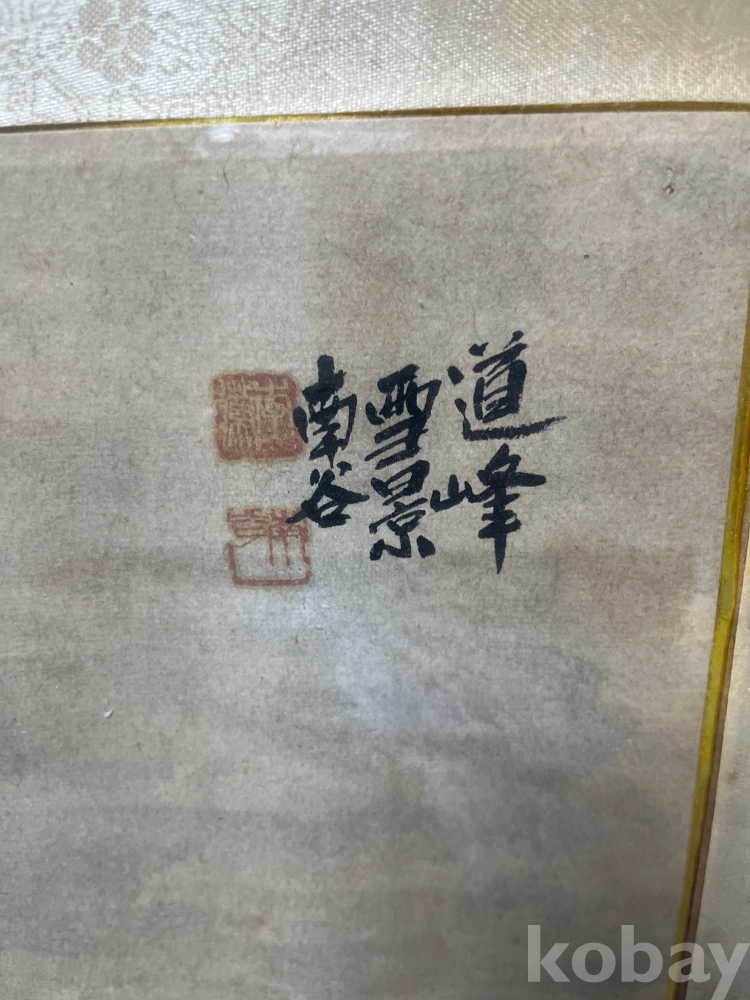 道峰
雪景
南谷
kobay